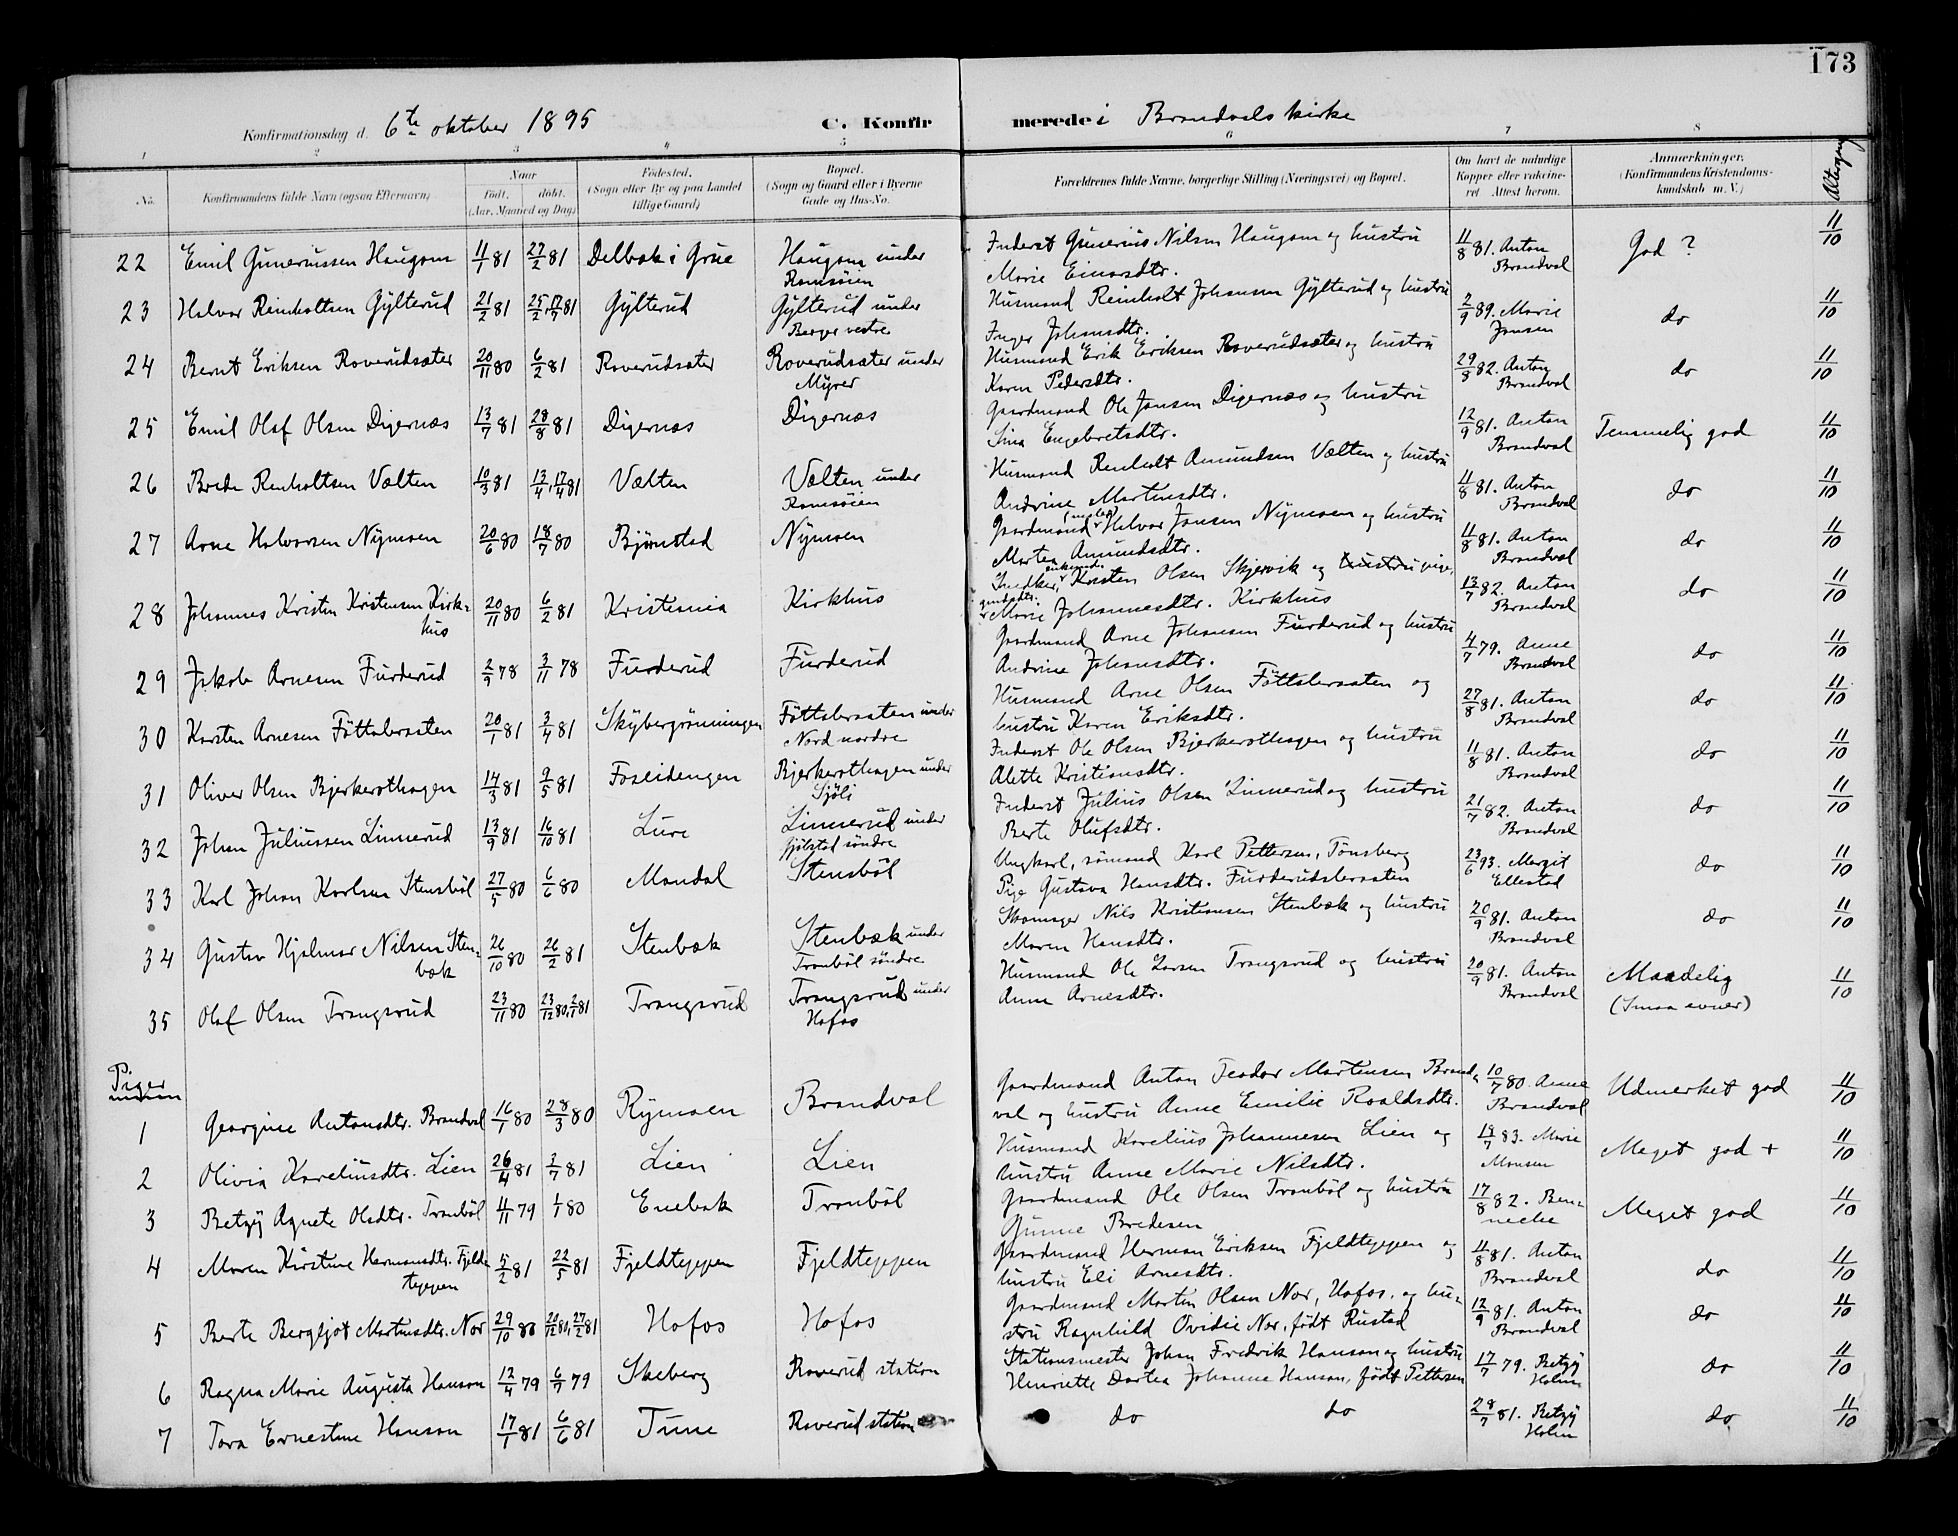 173
Konfirmationsdag d. 6te oktober 1895 C. Konfirmerede i Brandvals kirke
1 2 3 4 5 6 7 8
No. Konfirmandens fulde Navn (ogsaa Efternavn). Naar født, døbt. (Aar, Maaned og Dag). Fødested. (Sogn eller By og paa Landet tillige Gaard) Bopæl. (Sogn og Gaard eller i Byerne Gade og Hus-No. Forældrenes fulde Navne, borgerlige Stilling (Næringsvei) og Bopæl. Om havt de naturlige Kopper eller vaksineret. Attest herom. Anmærkninger. (Konfirmandens Kristendomskundskab m. V.) Altergang
22 Emil Gunerussen Haugom 11/1 81 27/2 81 Delbak i Grue Haugom under Romsøien Inderst Gunerius Nilsen Haugom og hustru Marie Einarsdtr. 11/8 81. Anton Brandval God ? 11/10
23 Halvor Reinholtsen Gylterud 21/2 81 25/2, 17/7 81 Gylterud Gylterud under Berger vestre Husmand Reinholt Johansen Gylterud og hustru Inger Johansdtr. 2/9 89. Marie Jansen do 11/10
24 Bernt Eriksen Roverudsæter 20/11 80 6/2 81 Roverudsæter Roverudsæter under Myrer Husmand Erik Eriksen Roverudsæter og hustru Karen Pedersdtr. 29/8 82. Anton Brandval do 11/10
25 Emil Olaf Olsen Digernæs 13/7 81 28/8 81 Digernæs Digernæs Gaardmand Ole Jansen Digernæs og hustru Lina Engebretsdtr. 12/9 81. Anton Brandval Temmelig god 11/10
26 Brede Renholtsen Vælten 10/3 81 13/4, 17/4 81 Vælten Vælten under Romsøien Husmand Renholt Amundsen Vælten og hustru Andrine Martinsdtr. 11/8 81. Anton Brandval do 11/10
27 Arne Halvorsen Nymoen 20/6 80 18/7 80 Bjørnstad Nymoen Gaardmand Halvor Jansen Nymoen og hustru Marten Amundsdtr. 11/8 81. Anton Brandval do 11/10
28 Johannes Kristen Kristensen Kirkhus 20/11 80 6/2 81 Kristiania Kirkhus Snedker, enkemd. Kristen Olsen Skjervik og hustru pige, Marie Johannesdtr. Kirkhus 13/7 82. Anton Brandval do 11/10
29 Jakob Arnesen Furderud 2/9 78 3/11 78 Furderud Furderud Gaardmand Arne Johansen Furderud og hustru Andrine Johansdtr. 4/7 79. Anne Brandval do 11/10
30 Karsten Arnesen Föttsbraaten 20/1 81 3/4 81 Skybergrönningen Föttsbraaten under Nord nordre Husmand Arne Olsen Föttsbraaten og hustru Karen Eriksdtr. 27/8 81. Anton Brandval do 11/10
31 Oliver Olsen Bjerkerothagen 14/3 81 9/5 81 Foseidengen Bjerkerothagen under Sjöli Inderst Ole Olsen Bjerkerothagen og hustru Alette Kristiansdtr. 11/8 81. Anton Brandval do 11/10
32 Johan Juliussen Linnerud 13/9 81 16/10 81 Lure Linnerud under Kjölstad söndre Inderst Julius Olsen Linnerud og hustru Berte Olufsdtr. 21/7 82. Anton Brandval do 11/10
33 Karl Johan Karlsen Stensböl 27/5 80 6/6 80 Mandal Stensböl Ungkarl, sömand Karl Pettersen, Tönsberg Pige Gustava Hansdtr. Furderudsbraaten 23/6 93. Margit Ellestad do 11/10
34 Gustav Hjalmar Nilsen Stenbæk 26/10 80 26/2 81 Stenbæk Stenbæk under Tronböl söndre Skomager Nils Kristiansen Stenbæk og hustru Maren Hansdtr. 20/9 81. Anton Brandval do 11/10
35 Olaf Olsen Trangsrud 23/11 80 23/12 80, 2/1 81 Trangsrud Trangsrud under Hofos Husmand Ole Larsen Trangsrud og hustru Anne Arnesdtr. 20/9 81. Anton Brandval Maadelig (Smaa evner) 11/10
Piger
1 Georgine Antonsdtr. Brandval 16/1 80 28/3 80 Rymoen Brandval Gaardmand Anton Teodor Martinsen Brandval og hustru Anne Emilie Roaldsdtr. 10/7 80. Anne Brandval Udmerket god 11/10
2 Olivia Kareliusdtr. Lien 26/4 81 3/7 81 Lien Lien Husmand Karelius Johannesen Lien og hustru Anne Marie Nilsdtr. 19/7 83. Marie Monsen Meget god + 11/10
3 Betzy Agnete Olsdtr. Tronböl 4/11 79 1/1 80 Enebak Tronböl Gaardmand Ole Olsen Tronböl og hustru Gunne Bredesen 17/8 82. Benneche Meget god 11/10
4 Maren Kirstine Hermansdtr. Fjeldteppen 5/2 81 22/5 81 Fjeldteppen Fjeldteppen Gaardmand Herman Eriksen Fjeldteppen og hustru Eli Arnesdtr. 11/8 81. Anton Brandval do 11/10
5 Berte Bergljot Martinsdtr. Nor 29/10 80 20/12 80, 27/2 81 Hofos Hofos Gaardmand Martin Olsen Nor, Hofos, og hustru Ragnhild Ovidie Nor, født Rustad 12/9 81. Anton Brandval do 11/10
6 Ragna Marie Augusta Hanson 12/4 79 6/7 79 Skeberg Roverud station Stationsmester Johan Fredrik Hanson og hustru Henriette Dortea Johanne Hanson, født Pettersen 17/7 79. Betzy Holm do 11/10
7 Tora Ernestine Hanson 17/1 81 6/6 81 Tune Roverud station do do 28/7 81. Betzy Holm do 11/10